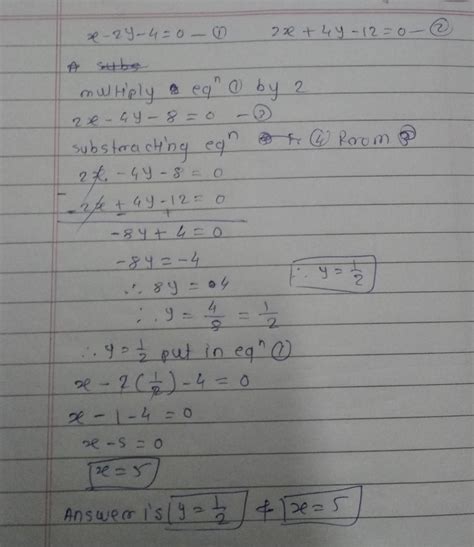 x - 2y - 4 = 0 — ① 2x + 4y - 12 = 0 — ②
multiply eqⁿ ① by 2
2x - 4y - 8 = 0 — ③
substracting eqⁿ from
2x - 4y - 8 = 0
- 2x + 4y - 12 = 0
- - +
-8y + 4 = 0
-8y = -4
∴ 8y = 4 ∴ y = 1/2
∴ y = 4/8 = 1/2
∴ y = 1/2 put in eqⁿ ①
x - 2(1/2) - 4 = 0
x - 1 - 4 = 0
x - 5 = 0
x = 5
Answer is y = 1/2 & x = 5